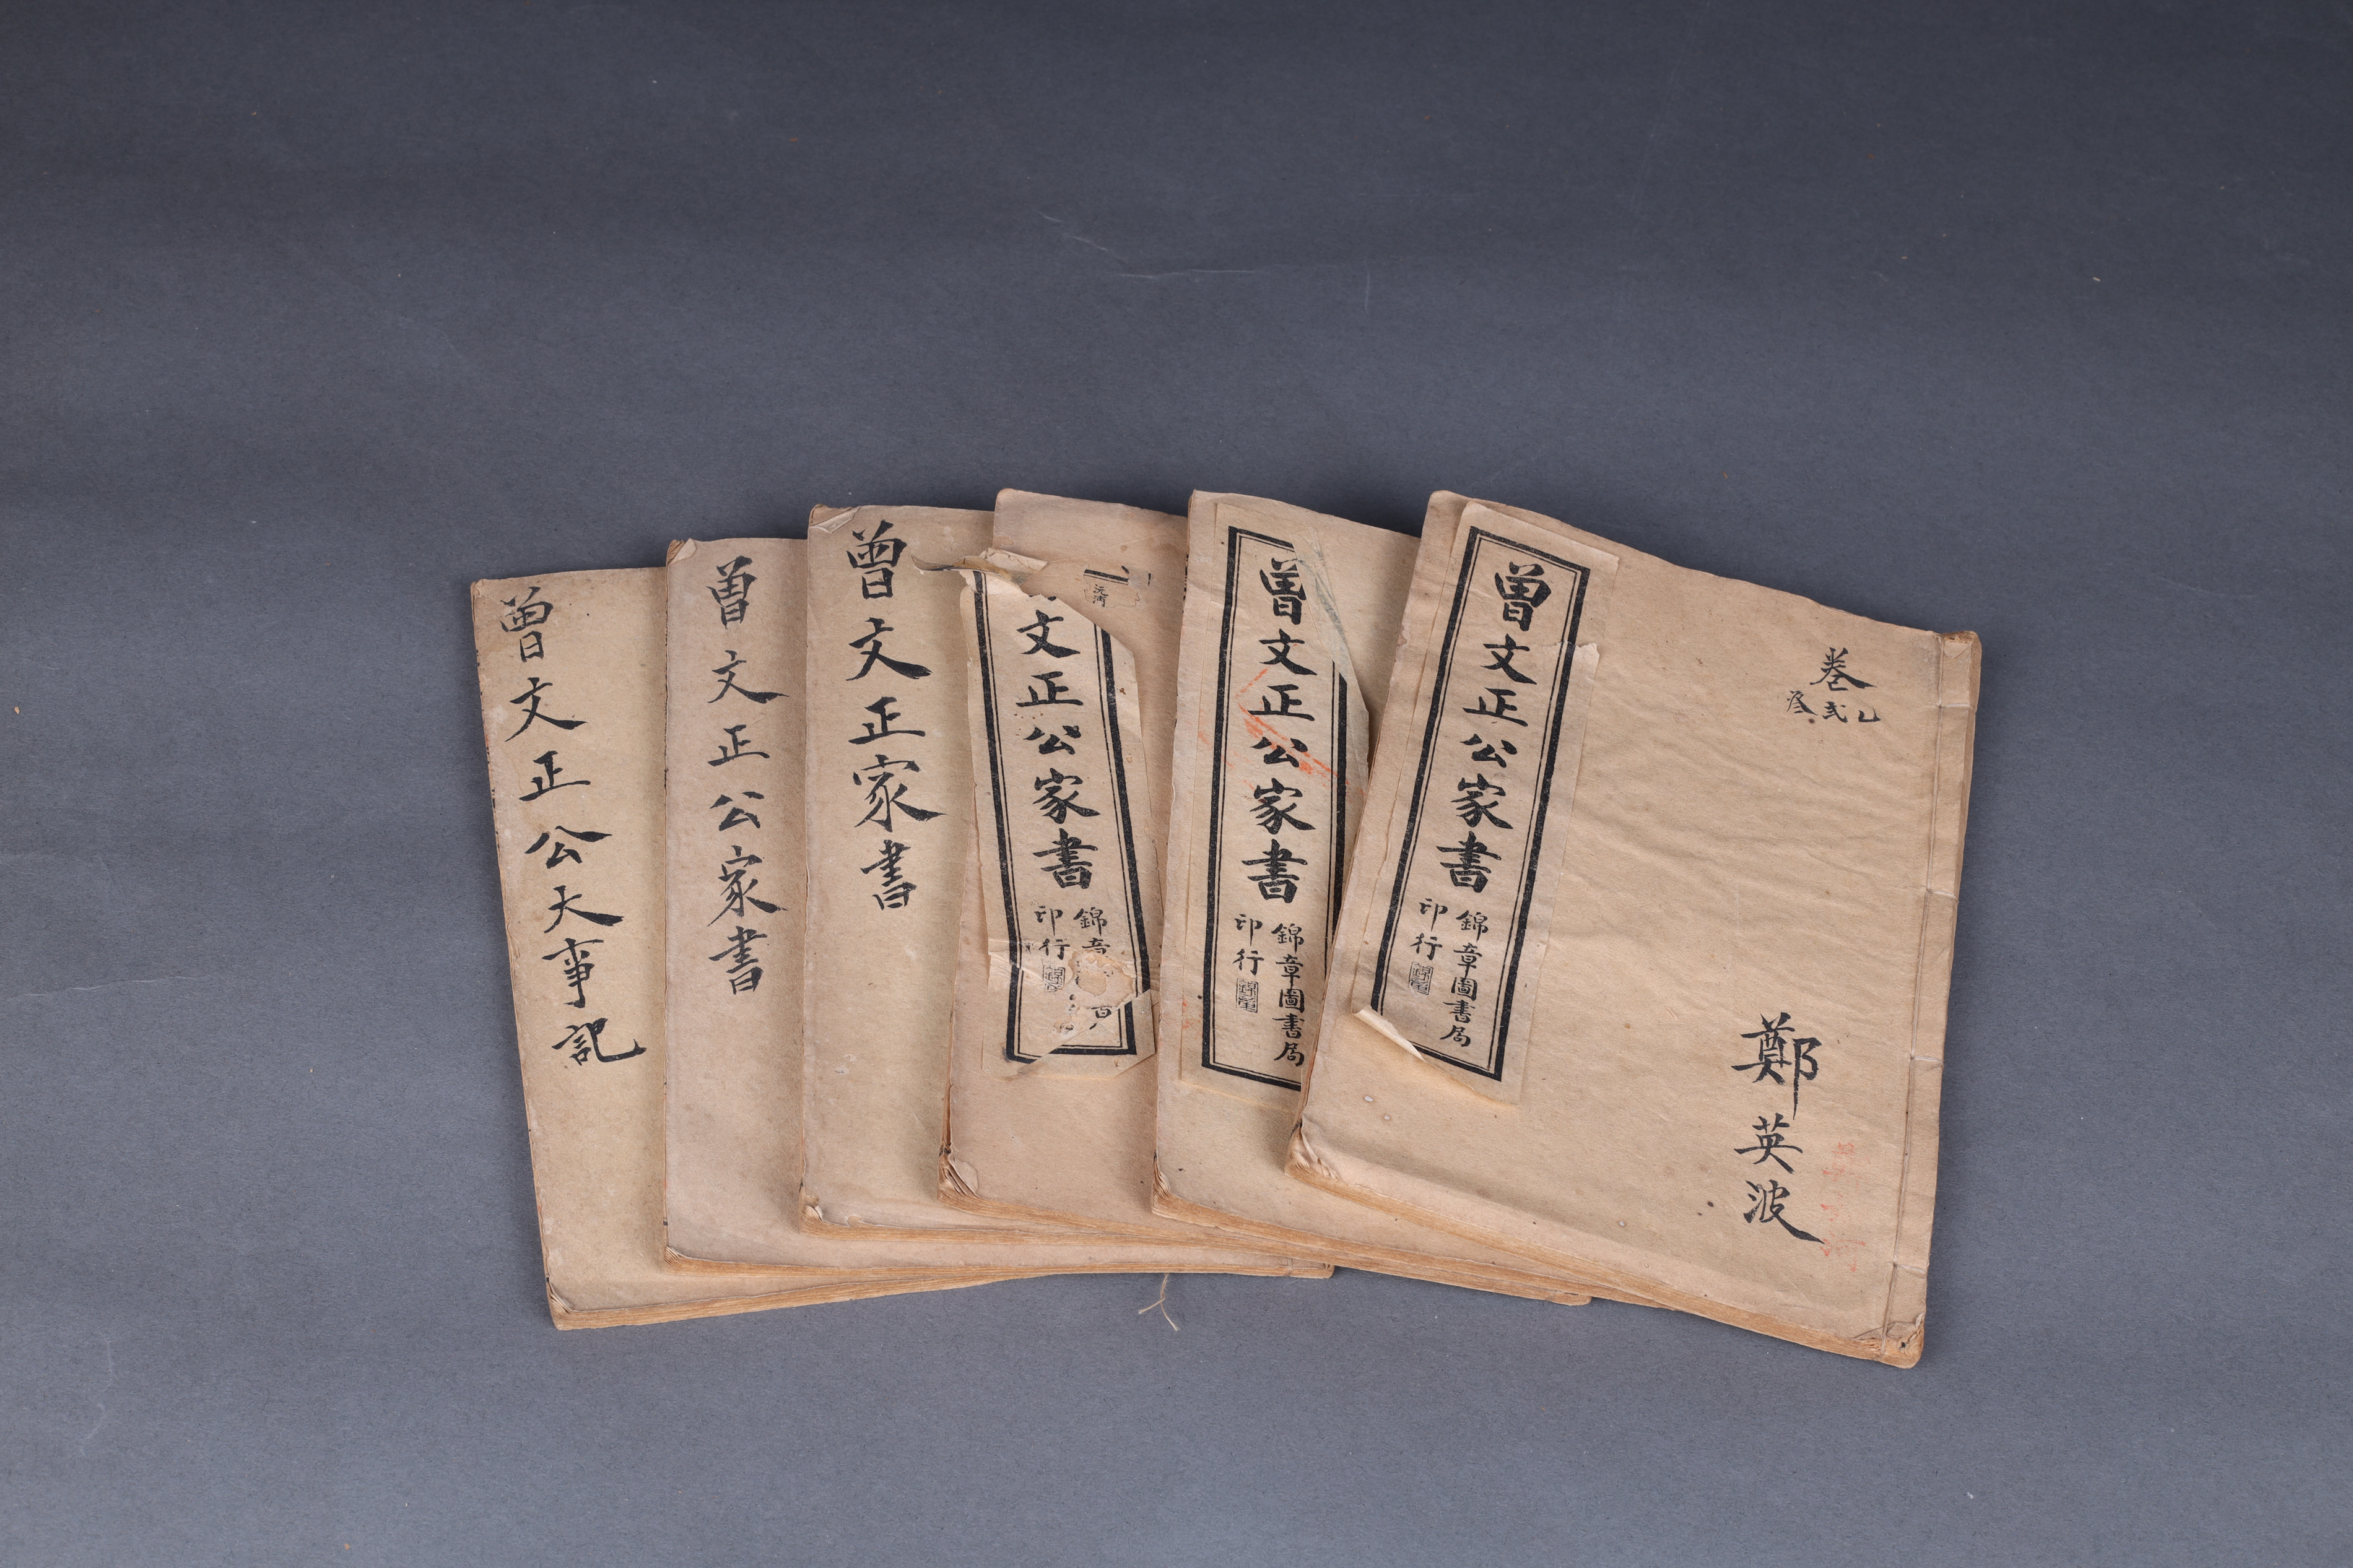 曾文正公大事記
曾文正公家書
曾文正家書
文正公家書
錦章
印行
曾文正公家書
錦章圖書局
印行
曾文正公家書
錦章圖書局
印行
卷
乙
弍
叄
鄭英波